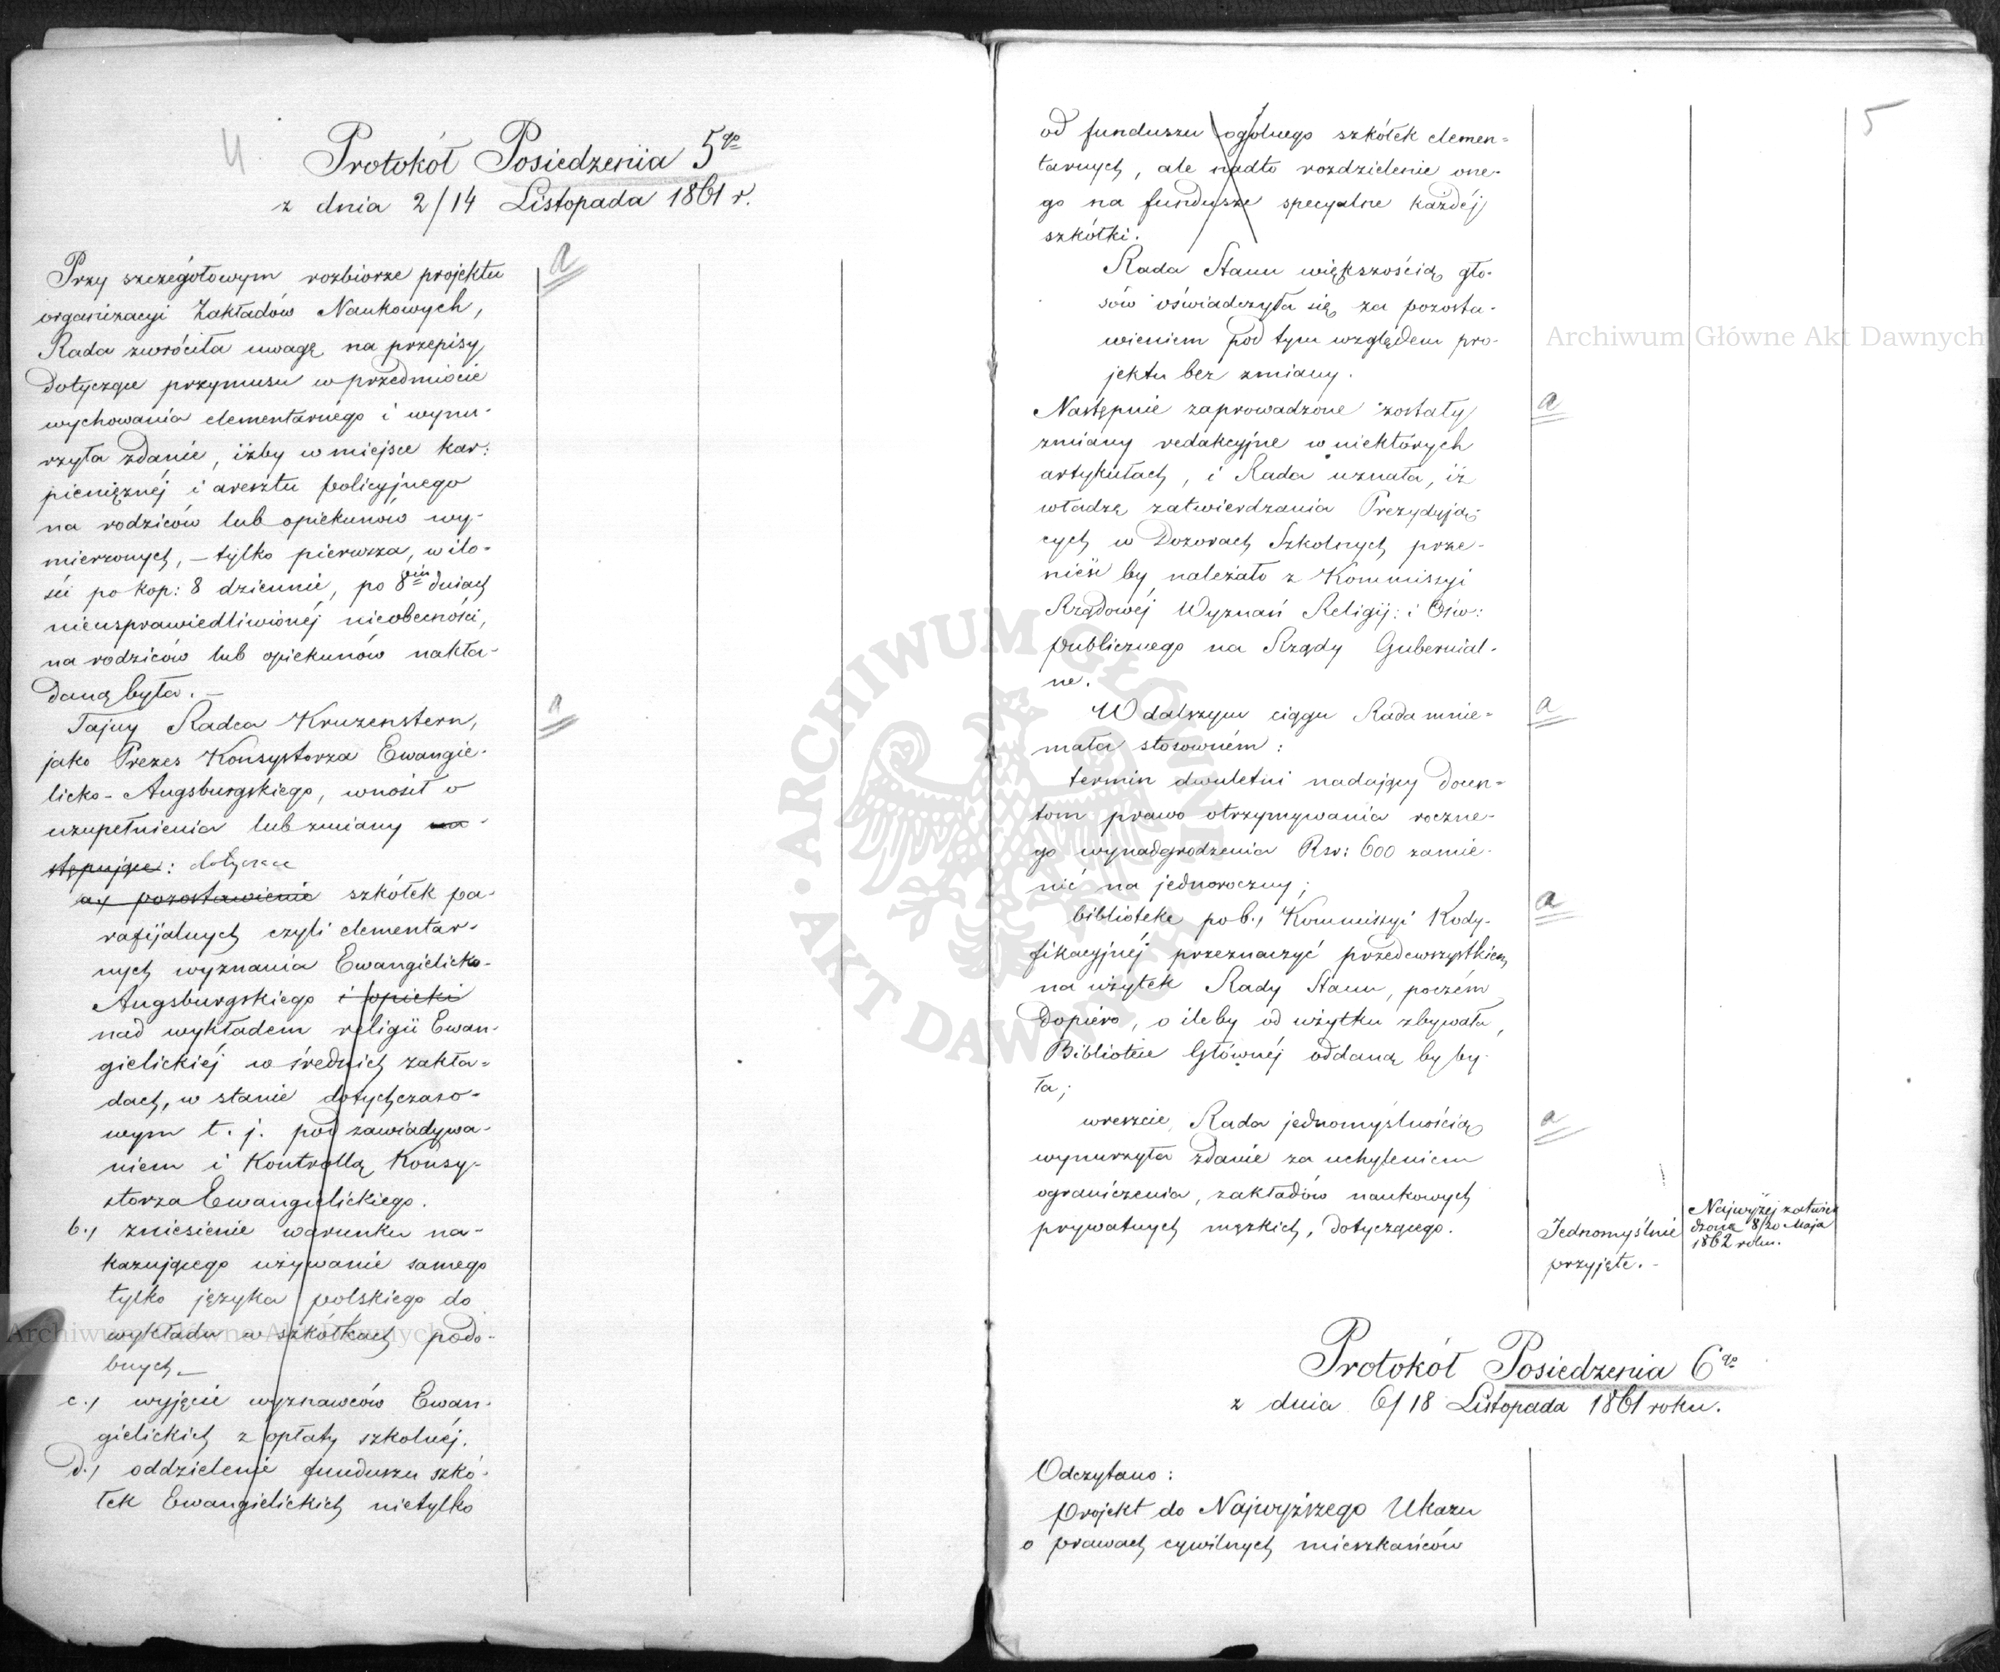 4
Protokół Posiedzenia 5go
z dnia 2/14 Listopada 1861 r.
a
Przy szczegółowym rozbiorze projektu
organizacyi Zakładów Naukowych,
Rada zwróciła uwagę na przepisy
dotyczące przymusu w przedmiocie
wychowania elementarnego i wynu-
rzyła zdanie, iżby w miejsce kar:
pieniężnéj i aresztu policyjnego
na rodziców lub opiekunów wy-
mierzonych, – tylko pierwsza, w ilo-
ści po kop: 8 dziennie, po 8miu dniach
nieusprawiedliwionéj nieobecności,
na rodziców lub opiekunów nakła-
daną była. –
a
Tajny Radca Kruzenstern,
jako Prezes Konsystorza Ewangie-
licko-Augsburgskiego, wnosił o
uzupełnienia lub zmiany na-
stępujące: dotyczące
a) pozostawienie szkółek pa-
rafijalnych czyli elementar-
nych wyznania Ewangielicko-
Augsburgskiego i opieki
nad wykładem religii Ewan-
gielickiéj w średnich zakła-
dach, w stanie dotychczaso-
wym t. j. pod zawiadywa-
niem i Kontrollą Konsy-
storza Ewangielickiego.
b.) zniesienie warunku na-
kazującego używanie samego
tylko języka polskiego do
wykładu w szkółkach podo-
bnych –
c.) wyjęcie wyznawców Ewan-
gielickich z opłaty szkolnéj.
d.) oddzielenie funduszu szkó-
łek Ewangielickich nietylko
5
od funduszu ogólnego szkółek elemen-
tarnych, ale nadto rozdzielenie one-
go na fundusze specyalne każdéj
szkółki.
Rada Stanu większością gło-
sów oświadczyła się za pozosta-
wieniem pod tym względem pro-
jektu bez zmiany.
a
Następnie zaprowadzone zostały
zmiany redakcyjne w niektórych
artykułach, i Rada uznała, iż
władzę zatwierdzania Prezydują-
cych w Dozorach Szkolnych prze-
nieść by należało z Kommissyi
Rządowéj Wyznań Religij: i Ośw:
publicznego na Rządy Gubernial-
ne.
a
W dalszym ciągu Rada mnie-
mała stosowném:
termin dwuletni nadający docen-
tom prawo otrzymywania roczne-
go wynadgrodzenia Rsr: 600 zamie-
nić na jednoroczny;
a
bibliotekę po b., Kommissyi Kody-
fikacyjnéj przeznaczyć przedewszystkiem
na użytek Rady Stanu, poczém
dopiero, o ileby od użytku zbywała,
Bibliotece Głównéj oddaną by by-
ła;
a
wreszcie, Rada jednomyślnością
wynurzyła zdanie za uchyleniem
ograniczenia, zakładów naukowych
prywatnych męzkich, dotyczącego.
Jednomyślnie
przyjęte. –
Najwyżéj zatwier
dzona 8/20 Maja
1862 roku.
Protokół Posiedzenia 6go
z dnia 6/18 Listopada 1861 roku.
Odczytano:
projekt do Najwyższego Ukazu
o prawach cywilnych mieszkańców
Archiwum Główne Akt Dawnych
Archiwum Główne Akt Dawnych
ARCHIWUM GŁÓWNE
AKT DAWNYCH